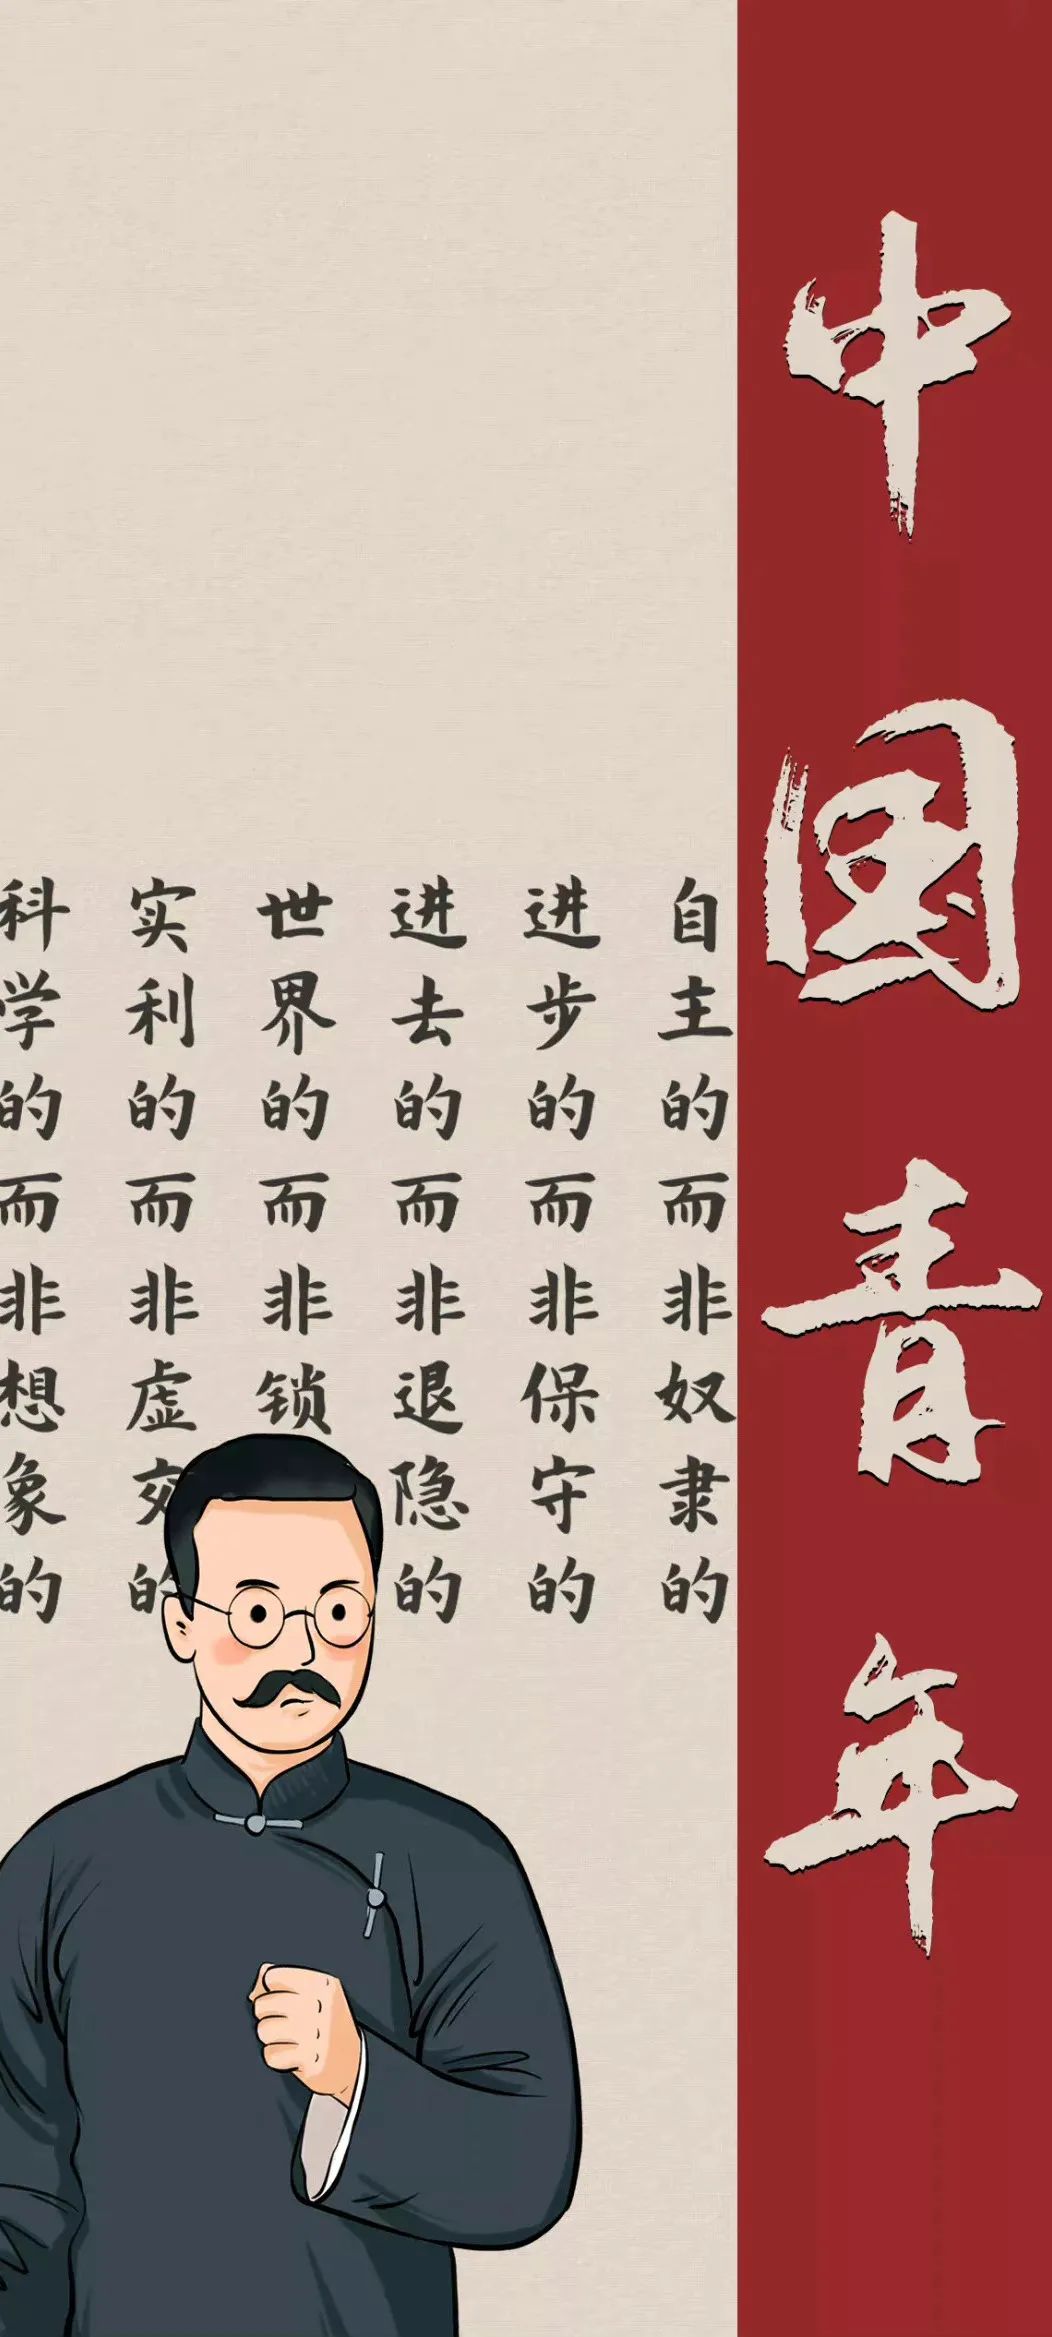 中国青年
自主的而非奴隶的
进步的而非保守的
进去的而非退隐的
世界的而非锁
实利的而非虚交的
科学的而非想象的